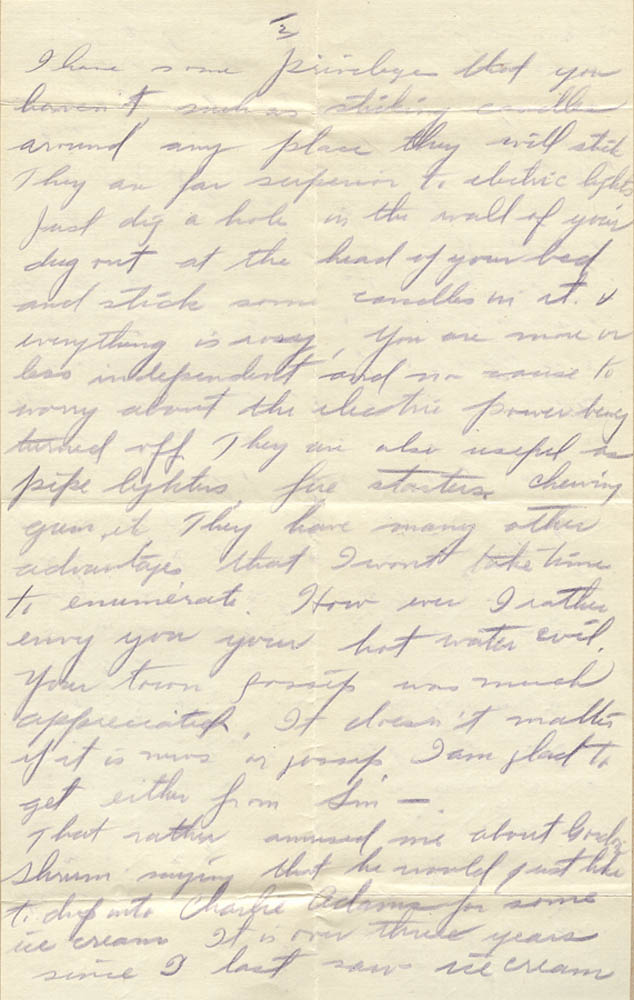 2
I have some privileges that you
haven't, such as sticking candles
around any place they will stick
They are far superior to electric lights
Just dig a hole in the wall of your
dug out at the head of your bed
and stick some candles in it. &
everything is rosy, You are more or
less independent and no cause to
worry about the electric power being
turned off. They are also useful as
pipe lighters, fire starters, chewing
gum, They have many other
advantages that I wont take time
to enumerate. How ever I rather
envy you your hot water
Your town gossip was much
appreciated, It doesn't matter
if it is news or gossip I am glad to
get either from
That rather amused me about Gordon
Shrum saying that he would just like
to drop into Charlie Adams for some
ice cream It is over three years
since I last saw ice cream